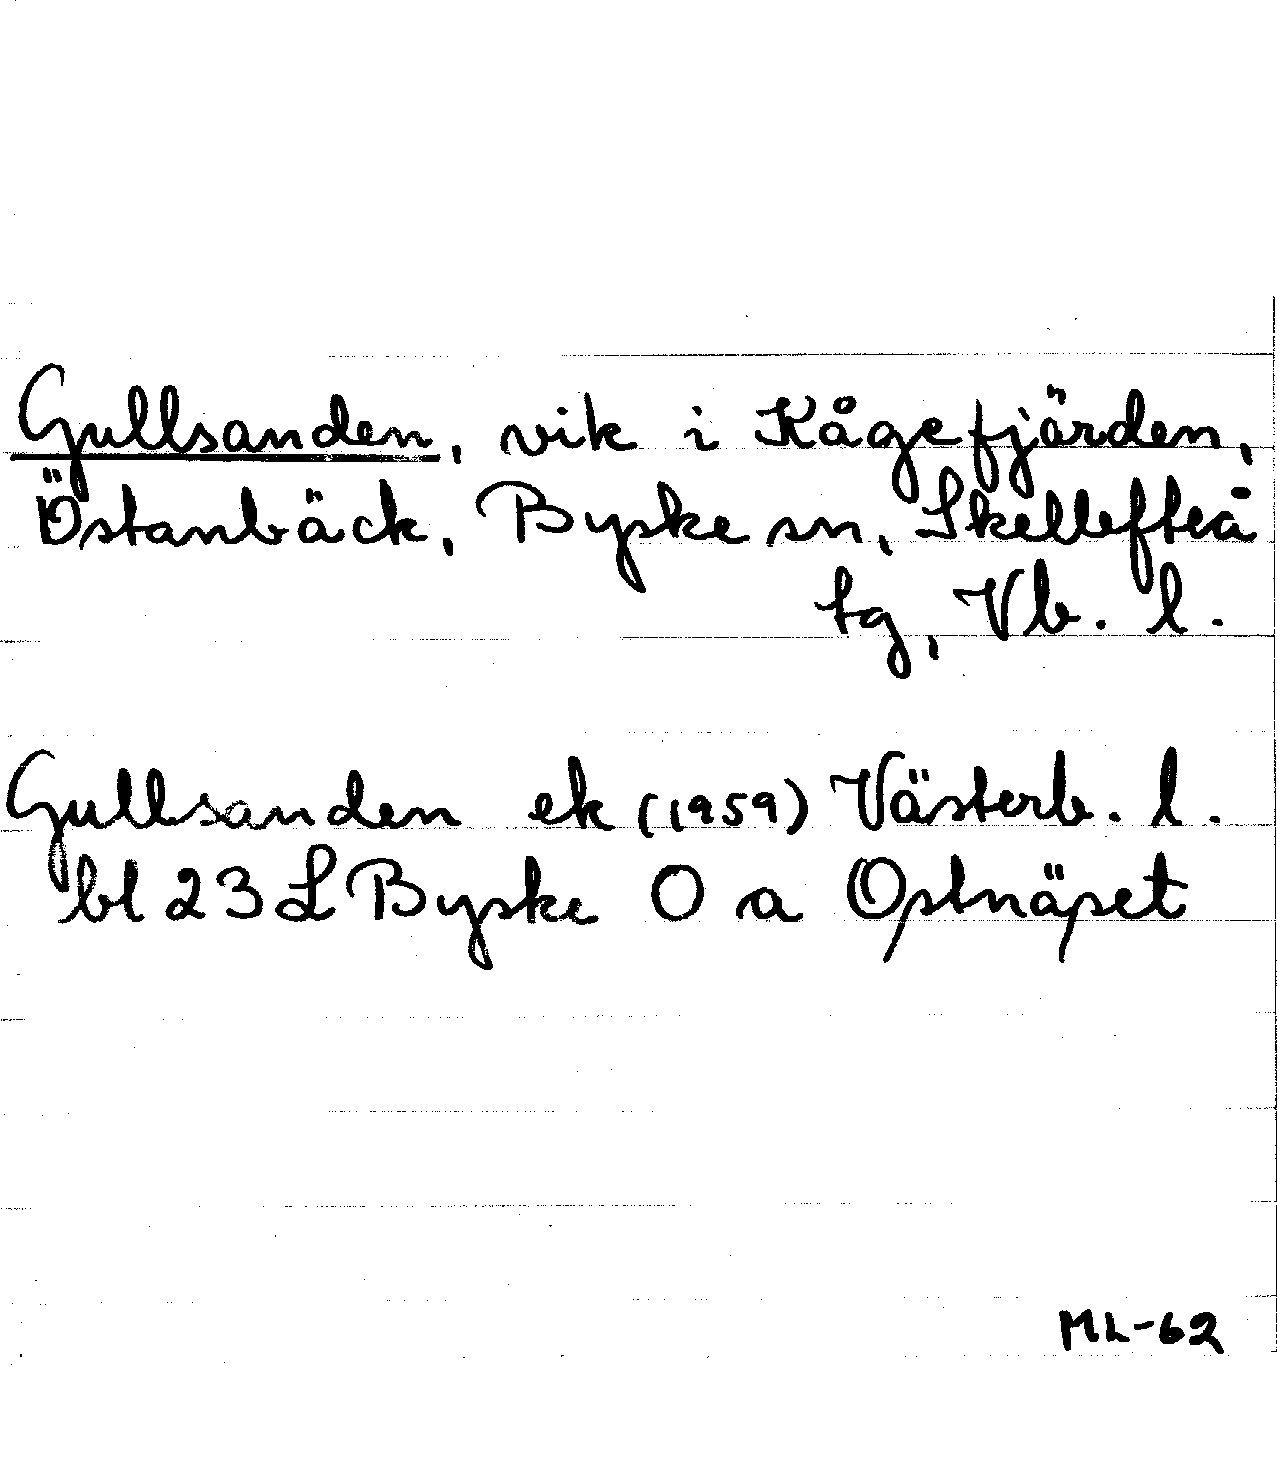 Gullsanden, vik i Kågefjärden,
Östanbäck, Byske sn, Skellefteå
tg, Vb. l.
Gullsanden ek (1959) Västerb. l.
bl 23 L Byske O a Ostnäset
ML-62